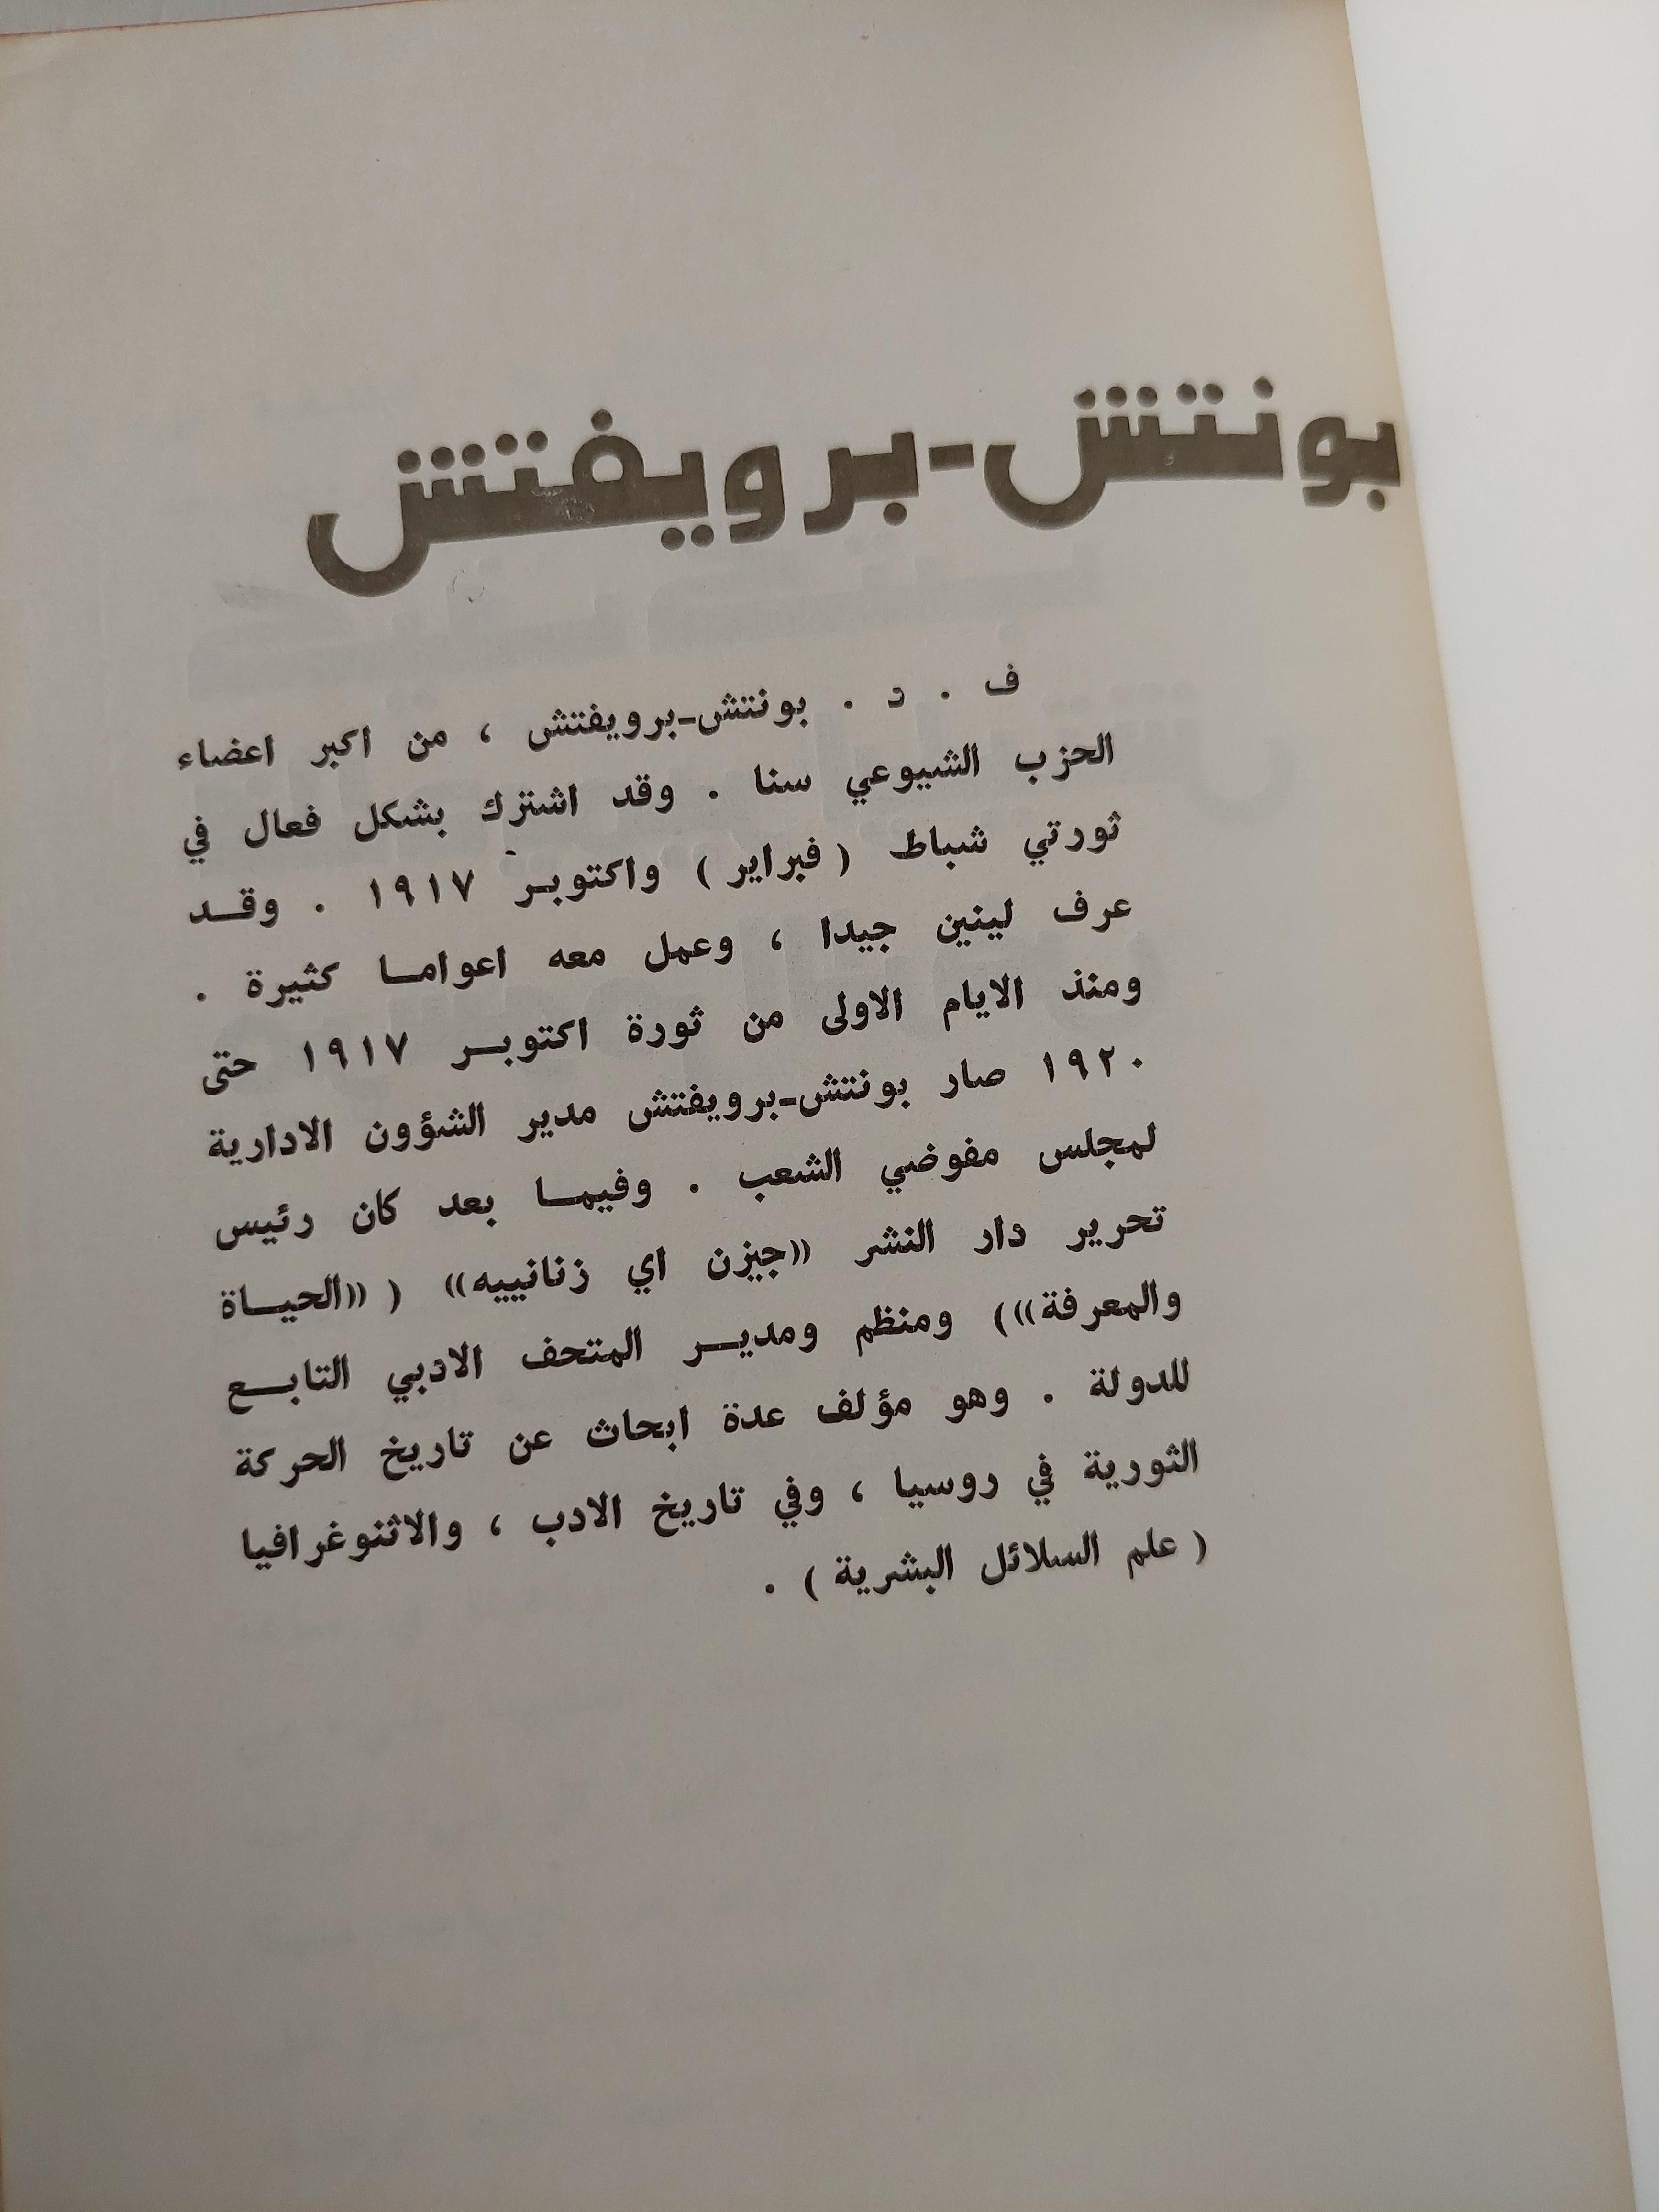 بونتش-برويفتش
ف . د . بونتش-برويفتش ، من اكبر اعضاء
الحزب الشيوعي سنا . وقد اشترك بشكل فعال في
ثورتي شباط ( فبراير ) واكتوبر ١٩١٧ . وقد
عرف لينين جيدا ، وعمل معه اعواما كثيرة .
ومنذ الايام الاولى من ثورة اكتوبر ١٩١٧ حتى
١٩٢٠ صار بونتش-برويفتش مدير الشؤون الادارية
لمجلس مفوضي الشعب . وفيما بعد كان رئيس
تحرير دار النشر «جيزن اي زنانييه» ( «الحياة
والمعرفة») ومنظم ومدير المتحف الادبي التابع
للدولة . وهو مؤلف عدة ابحاث عن تاريخ الحركة
الثورية في روسيا ، وفي تاريخ الادب ، والاثنوغرافيا
( علم السلائل البشرية ) .